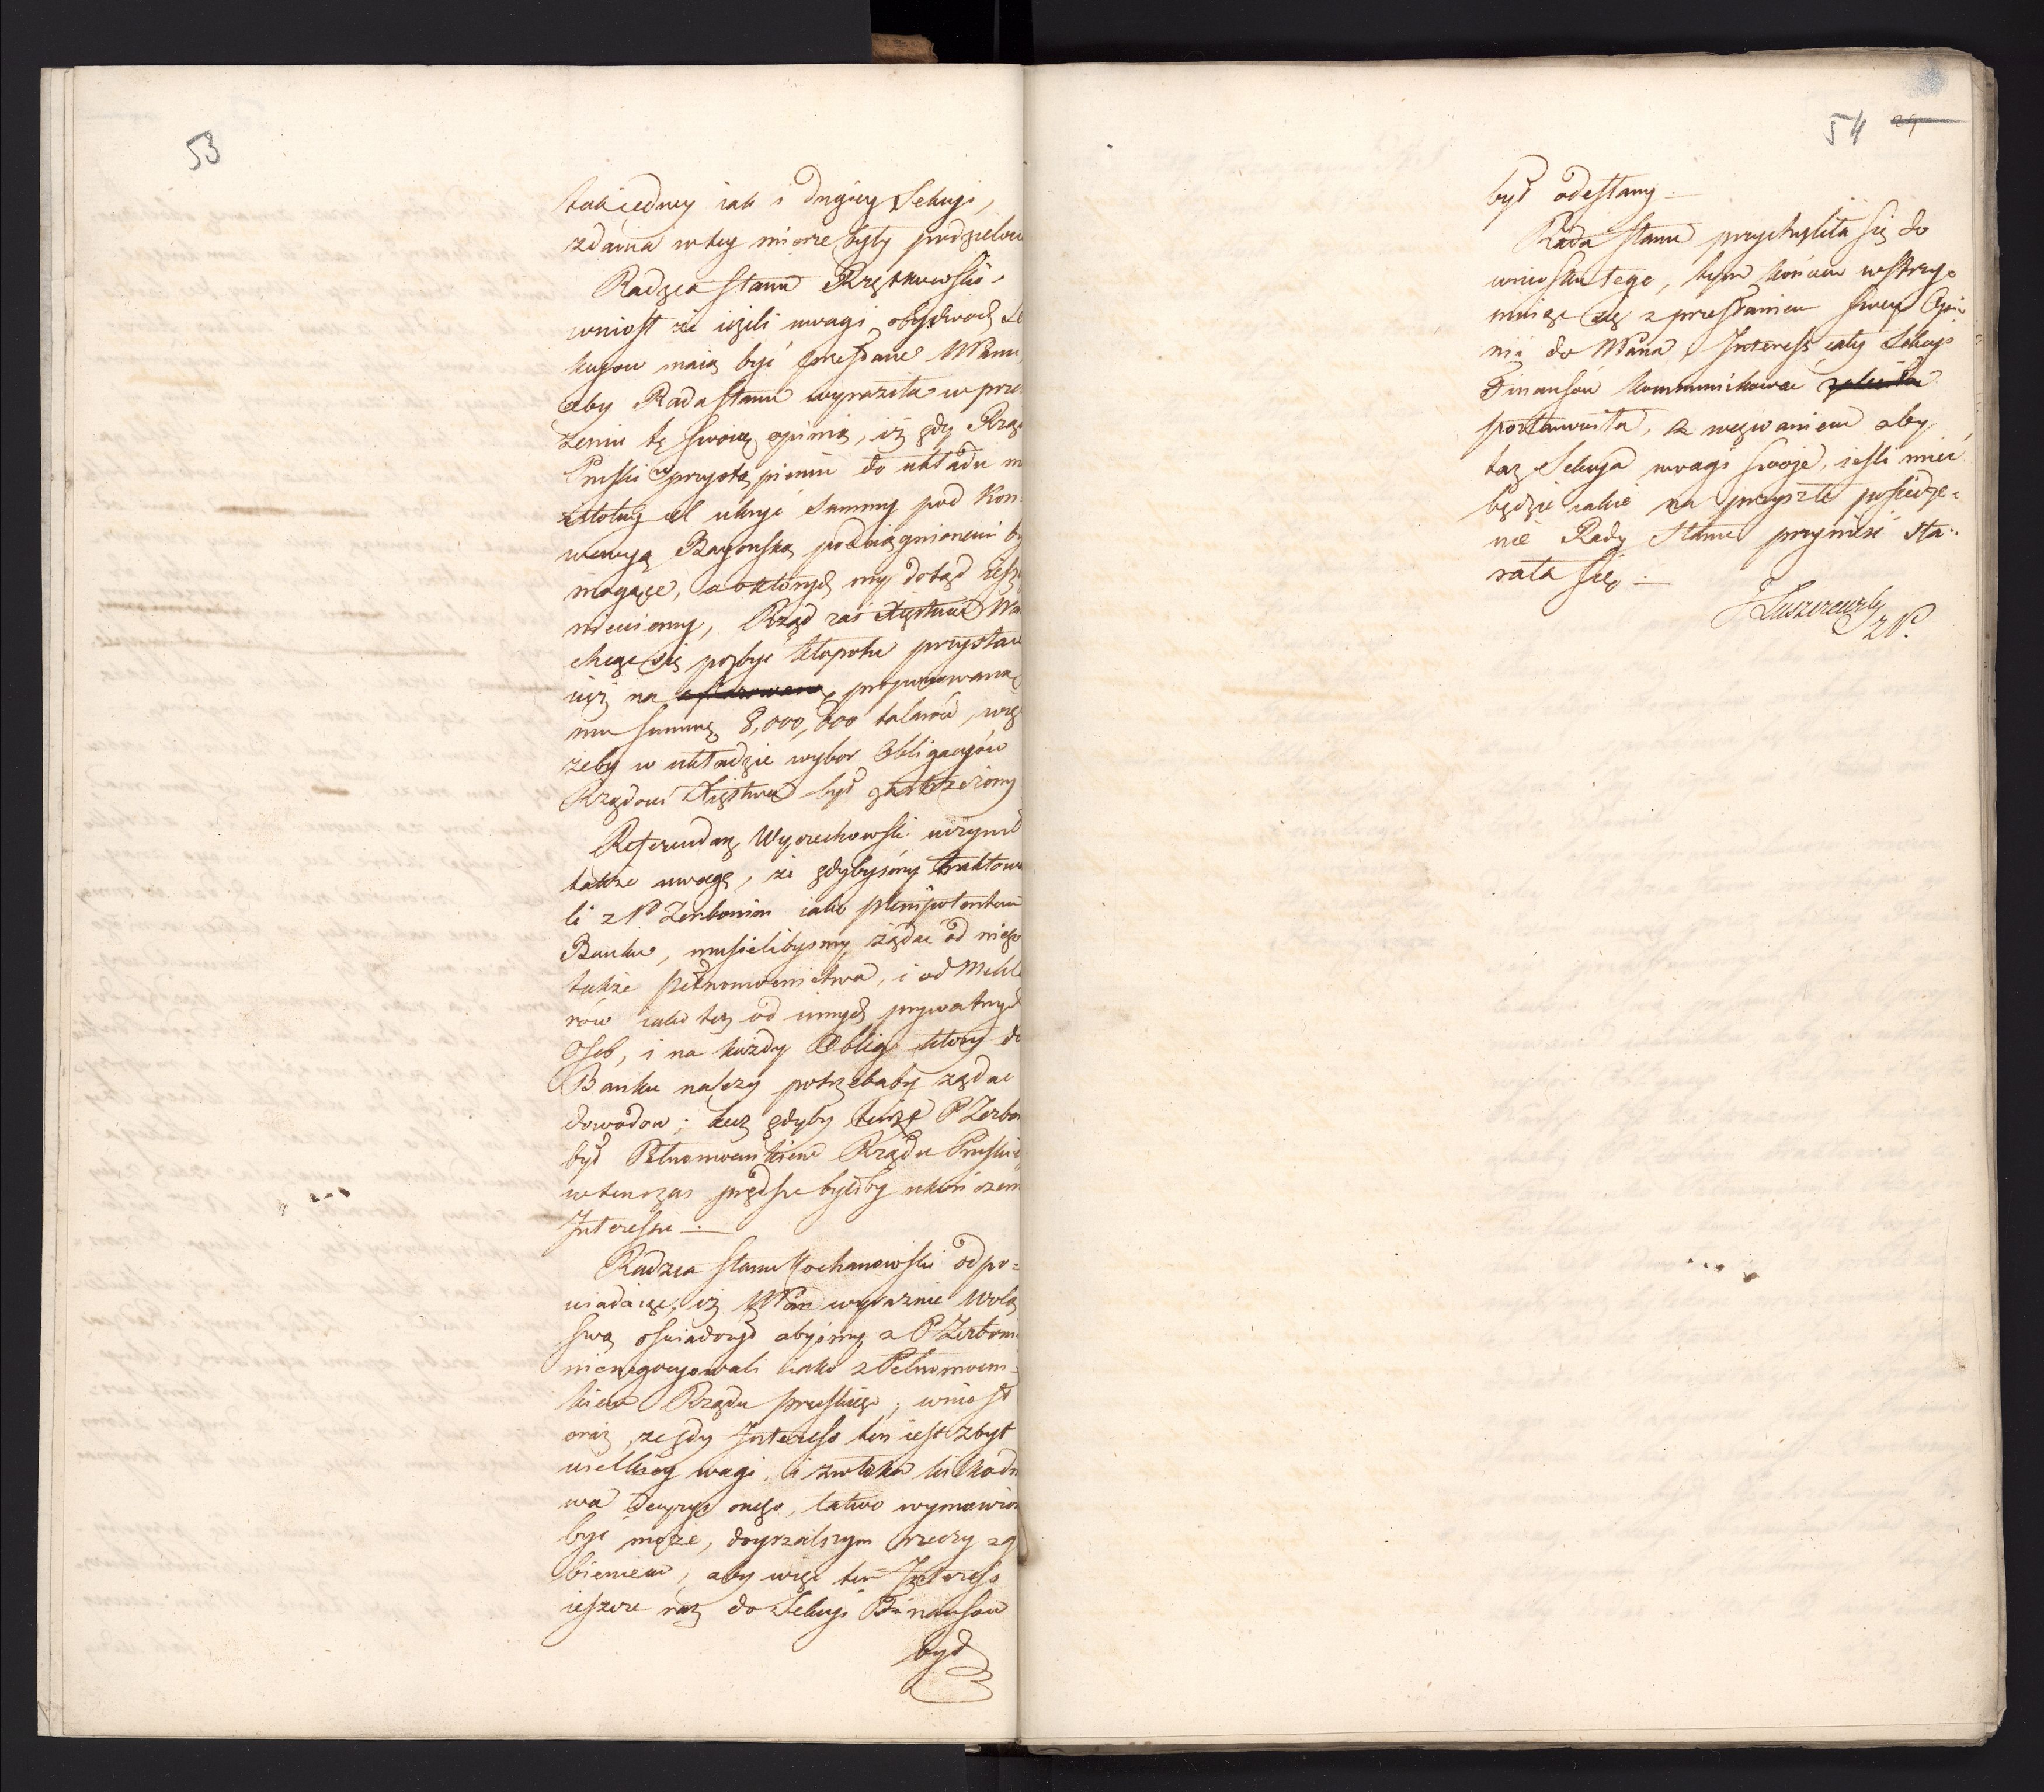 53
tak iedney iak i drugiey Sekcyi,
zdania w tey mierze były podzielon
Radzca Stanu Rzętkowski,
wniosł że ieżeli uwagi obydwoch Se
kcyow maią być przesłane NPanu
aby Rada Stanu wyraziła w prze
żeniu tę swoię opinią, iż gdy Rząd
Pruski w przystąpieniu do układu m
istotny cel ukryć summy pod Kon-
wencyą Bayonską podciągnionemi by
mogące, a o których my dotąd
niewiemy, Rząd zaś Xięstwa Wa
chcąc się pozbyć kłopotu przystaie
iuż na ofiarowaną proponowaną
mu summę 8,000,000 talarów, więc
żeby w układzie wybor Obligacyow
Rządowi Xięstwa był zastrzeżony
Referendarz Wyczechowski uczynił
także uwagę, że gdybyśmy traktowa
li z P Zerbonim iako plenipotentem
Banku, musielibysmy żądać od niego
także pełnomocnictwa, i od Mekle
rów iako też od innych prywatnych
Osob, i na każdy Oblig który do
Banku należy potrzebaby żądać
dowodow; lecz gdyby tenże P Zerbo
był Pełnomocnikiem Rządu Pruskie
wtenczas prędsze byłoby ukończeni
Interessu.—
Radzca Stanu Kochanowski odpo=
wiadaiąc, iż NPan wyraźnie wolą
swą oświadczył abyśmy z P Zerboni
nienegocyowali iako z Pełnomocni=
kiem Rządu pruskiego; wniosł
oraz, że gdy Interess ten iest zbyt
wielkiey wagi, i zwłoka
wa decyzyi onego, łatwo wymowion
być może, doyrzalszym rzeczy zg
bieniem, aby więc ten Interess
ieszcze raz do Sekcyi Finansow
był
54 29
był odesłany.—
Rada Stanu przychyliła się do
wniosku tego, tym końcem wstrzy=
muiąc się z przesłaniem swey Opi=
nii do NPana, Interess cały Sekcyi
Finansów kommunikować zaleciła
postanowiła, z wezwaniem aby
taż Sekcya uwagi swoje, ieśli mieć
będzie iakie na przyszłe posiedze=
nie Rady Stanu przynieść sta=
rała się.—